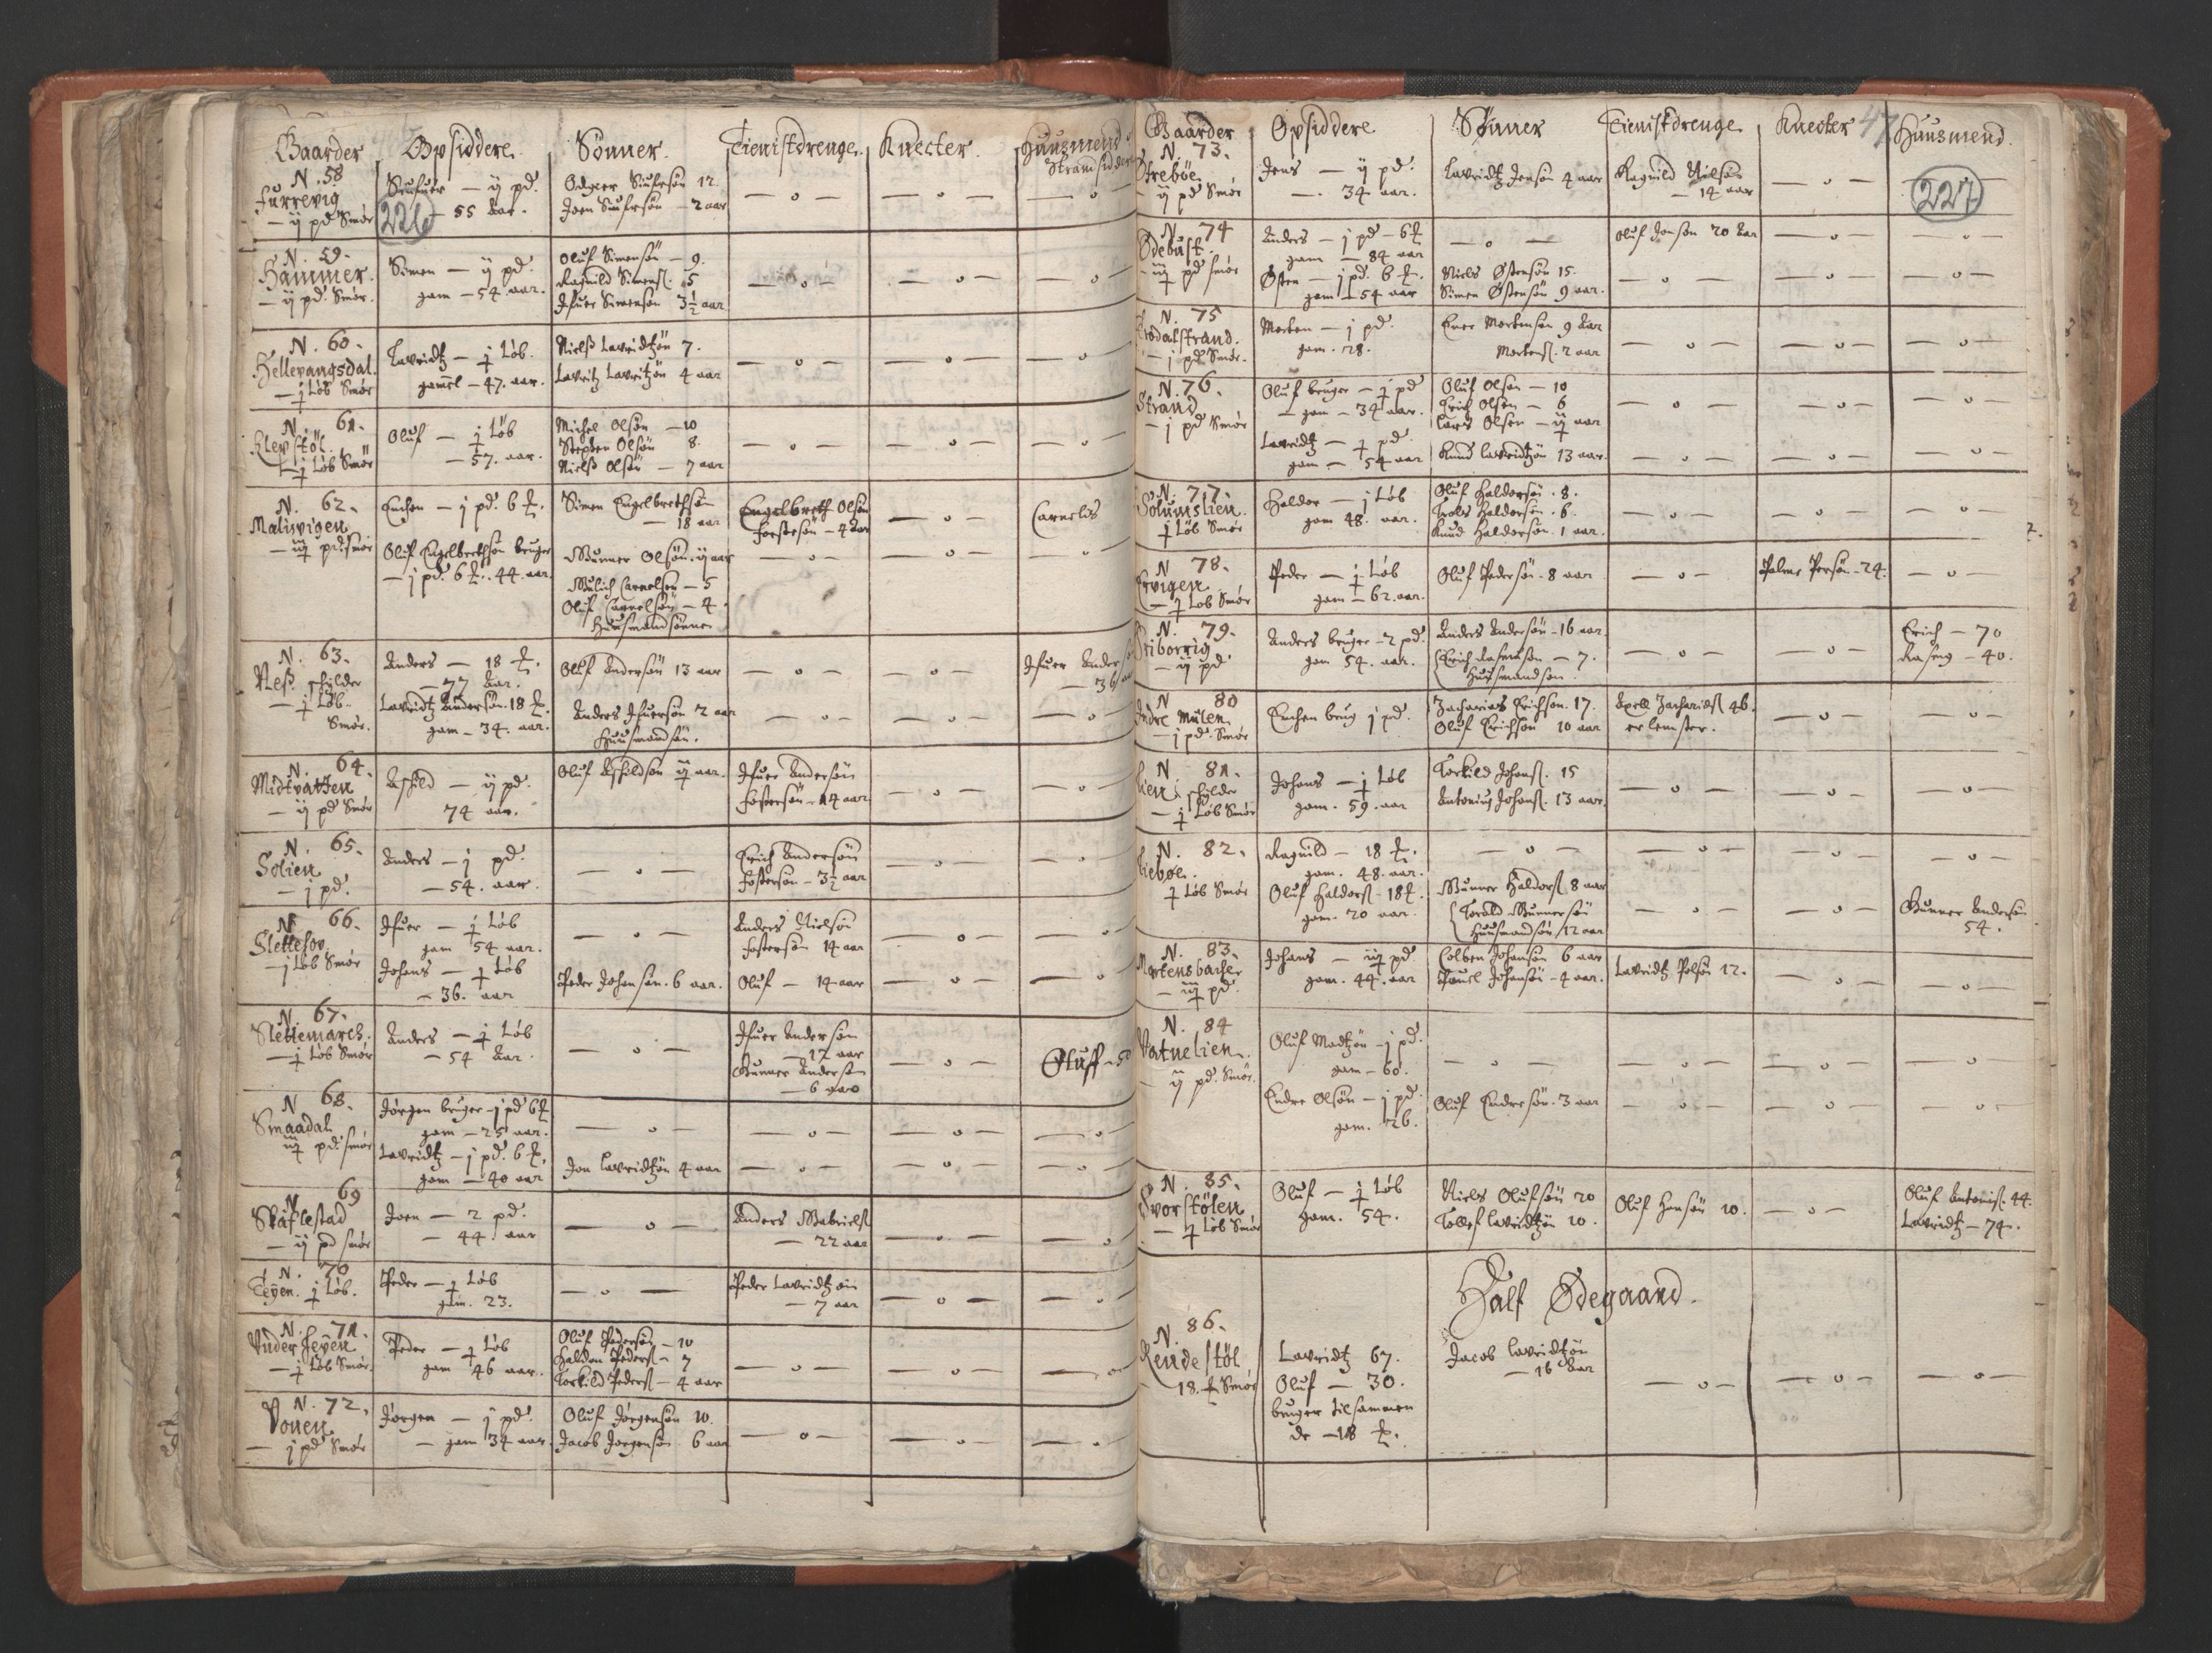 Gaarder Opsiddere. Sönner. Tienistdrenge. Knecter. Huusmend
Strandsiddere
N. 58
Furrevig
— ij pd Smör
— ij pd.
226 — 55 aar.
12.
— 2 aar
— o — — o — — o
N. 59.
Hammer.
— ij pd. Smör.
Simen — ij pd.
gam — 54 aar.
Oluf Simensön — 9.
Ragnild Simens. 5
Ifuer Simensøn 3½ aar
— o — — o — — o
N. 60.
Hellevangsdal.
— j Löb Smör
Lavridtz — j Löb.
gamel — 47. aar.
Nielss Lavridtzön 7.
Lavritz Lavritzön 4 aar
— o — — o — — o
N. 61.
Klepstöl.
— j Löb Smör
Oluf — j Löb
— 57. aar.
Michel Olsön — 10
Steffen Olsön 8.
Nielss Olsön — 7 aar
— o — — o — — o
N. 62.
Malisvigen
— pd. smör
— j pd. 6
Oluf Engelbrethsön bruger
— j pd. 6 44 aar.
Simen Engelbrethsøn
— 18 aar
Gunner Olsön. ij aar
Carnelsøn — 5
Oluf Carnelsön — 4
Huusmandsønner
Engelbreth Olsön
fostersön — 4 aar
— o —
— o — Carnelis
— o — o
N. 63.
Ness. schylder
— j Löb.
Smör.
Anders — 18
— 77 aar.
Lavridtz Andersön. 18
gam — 34. aar.
Oluf Andersön 13 aar
Anders Ifuersön 2 aar
Huusmandsön.
— o — — o —
Ifuer Anders
— 36
— o — — o — — o
N. 64.
Midtvatten
— ij pd Smör
— ij pd.
74 aar.
Oluf
aar.
Ifuer Andersön
fostersön — 14 aar
— o — — o
N. 65.
Solien
— j pd.
Anders — j pd.
— 54. aar.
— o —
Erich Andersön
fostersøn — 3½ aar
— o — — o
N. 66.
Slettesov
— j Löb Smör
Ifuer — j Löb
gam 54 aar.
Johans — j Löb
— 36. aar
— o —
Peder Johansøn. 6 aar.
Anders Nielsön
fostersön 14 aar
Oluf — 14 aar
— o — — o
— o — — o
N. 67.
Slettemarch.
— j Löb Smör
Anders — j Löb
— 54 aar.
— o —
Ifuer Andersøn
— 12 aar
Gunner Andersøn
— 6 aar
— o —
Oluff — 5
N. 68.
Smaadal
pd. smör
Jörgen bruger — j pd 6
gam — 25 aar.
Lavridtz — j pd. 6
gam — 40 aar
— o — — o — — o — — o
Jon Lavridtzön 4 aar — o — — o — — o
N. 69
Skaflestad
— ij pd smör
Joen — 2 pd.
— 44. aar
— o —
Anders Gabriels
— 22 aar
— o — — o
N. 70
Teÿen. j Löb.
Peder — j Löb
gam. 23.
— o —
Peder Lavridtzøn
— 7 aar
— o — — o
N. 71.
Vnder Teÿen
— j Löb Smör.
Peder — j Löb
gam 46 aar.
Oluf Pedersøn — 10
Haldon Peders — 7
Torkild Peders — 4 aar
— o — — o — — o
N. 72.
Vonen
— j pd Smör
Jörgen — j pd.
— gam 34 aar.
Oluf Jörgensön 10.
Jacob Jörgensøn 6 aar
— o — — o — — o
Gaarder Opsiddere Sönner Tienistdrenge. Knecter 47 Huusmend.
N. 73.
ij pd Smör
Jens — ij pd.
— 34 aar.
Lavridtz Jensøn 4 aar
Ragnild Nilsøn
— 14 aar
— o —
227
N. 74
pd smör
Anders — j pd — 6
gam — 84 aar
Østen — j pd. 6
gam — 54 aar
— o —
Niels Østensön 15.
Simen Østensön 9 aar.
Oluf Jonsøn 20 aar
— o —
— o — — o —
— o — — o —
N. 75
— j pd Smör.
Morten — j pd.
gam. 28.
Mortensøn 9 aar
Mortens. 2 aar
— o — — o — — o —
N. 76.
Strand
— j pd Smör
Oluf bruger — j pd
— gam — 34 aar.
Lavridtz — j pd.
gam — 54 aar
Oluf Olsøn — 10
Erich Olsøn — 6
Lars Olsen — ij aar
Knud Lavridtzön 13 aar.
— o — — o — — o —
— o — — o — — o —
N. 77.
Solumslien.
j Löb Smör
Haldor — j Löb
gam 48. aar.
Oluf Haldorsön. 8.
Trols Haldorsön. 6.
Knud Haldorsön. 1 aar.
— o — — o — — o —
N. 78.
— j Löb Smör
Peder — j Löb
gam — 62 aar.
Oluf Pedersön. 8 aar
— o —
Palme Persøn — 24.
— o —
N. 79.
— ij pd
Anders bruger — 2 pd.
gam 54. aar.
Anders Andersön — 16 aar.
Erich Rasmusøn — 7.
Huusmandsøn
— o — — o —
Erich — 70
Rasmus — 40.
N. 80
Indre Mülen
— j pd. Smör
brug j pd.
Zacharias Erichsøn. 17.
Oluf Erichsøn 10 aar
Axell Zacharias 46.
er lemster.
— o — — o —
N. 81.
Lien schylder
— j Löb Smör
Johans — j Löb
gam. 59. aar
Torkild Johans. 15
Antonius Johans. 13 aar.
— o — — o — — o —
N. 82.
j Löb Smör
Ragnild — 18
gam. 48. aar.
Oluf Haldors — 18
gam. 20 aar.
— o —
Gunner Haldors 8 aar
Torald Gunnersön
Huusmandsøn 12 aar
— o — — o — — o —
— o — — o —
Gunner Andersøn
54.
N. 83.
Mortensbache
— pd.
Johans — pd
gam. 44. aar
Colben Johansön 6 aar
Pouel Johansön — 4 aar.
Lavridtz Polsön 12.
— o — — o —
N. 84
Vatnelien.
— ij pd. Smör.
Oluf Madtzön — j pd.
gam — 60.
Endre Olsön — j pd.
gam. 26.
— o — — o — — o — — o
Oluf Endresön. 3 aar
— o — — o — — o —
N. 85.
— j Löb Smör
Oluf — j Löb
gam. 54.
Niels Olufsön 20
Tollef Lavridtzön 10.
Oluf Hansön 10.
— o —
Oluf Antonis. 44.
Lavridtz — 74.
Half Ødegaard.
N. 86.
Rendestöl
18. Smör
Lavridtz 67.
Oluf — 30.
bruger tilsammen
de — 18
Jacob Lavridtzön
— 16 aar
— o — — o — — o —